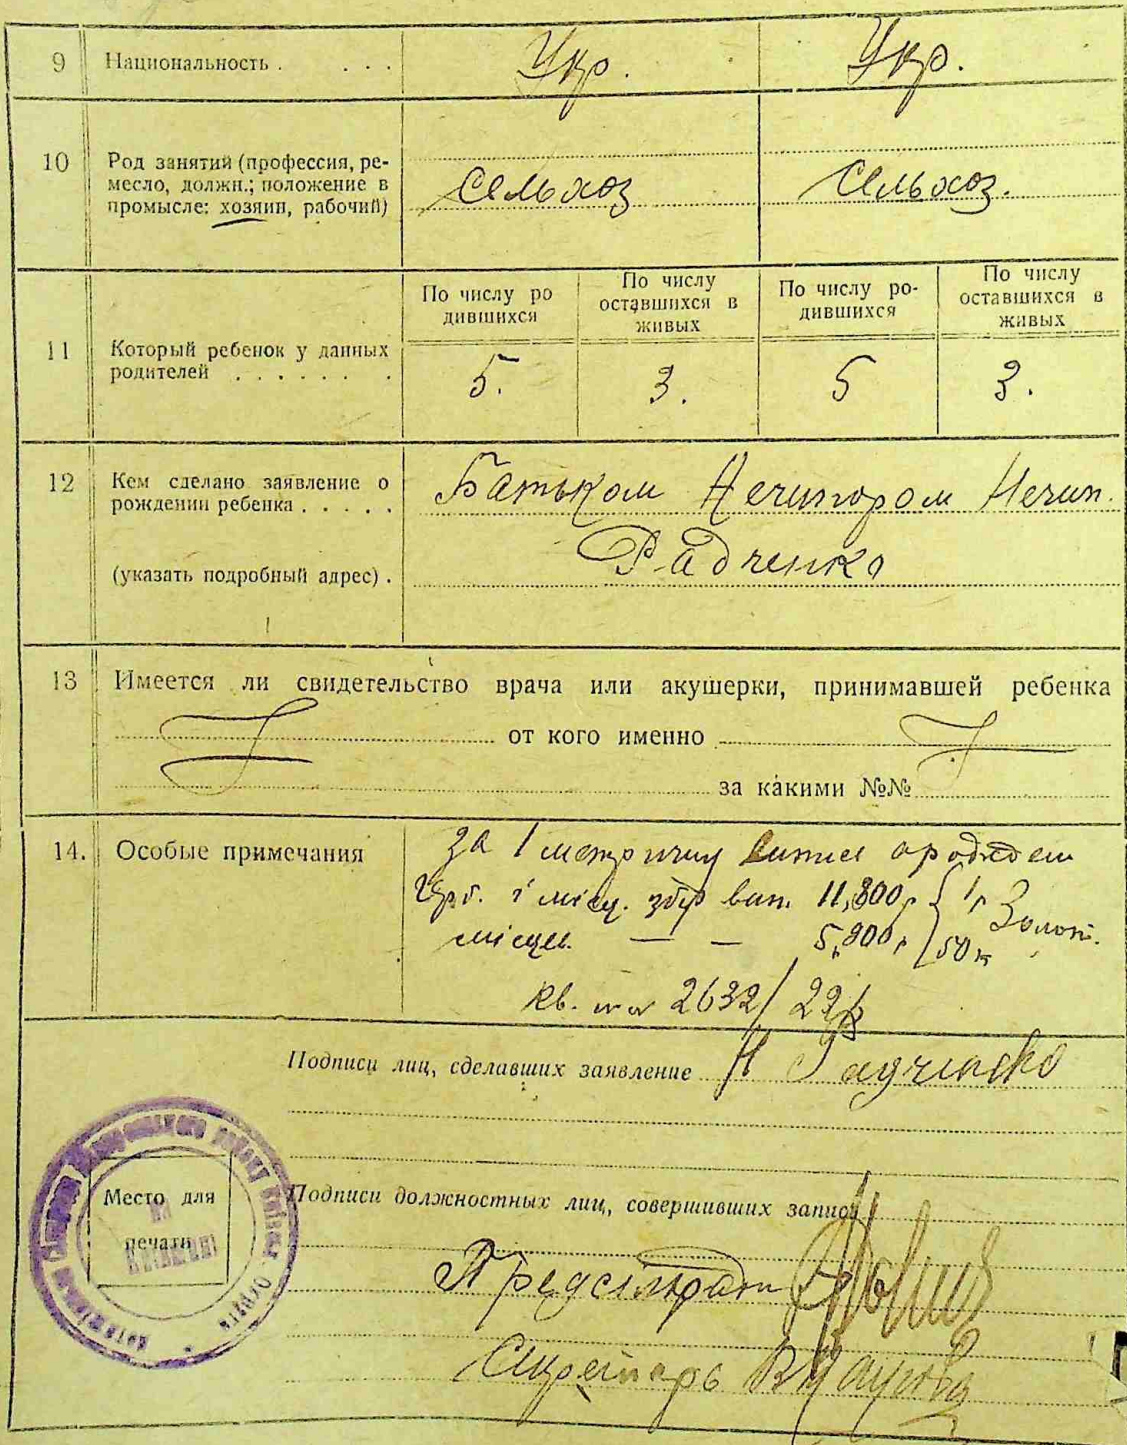 9 Национальность . . . . Укр. Укр.
10 Род занятий (профессия, ре-
месло, должн.; положение в
промысле: хозяин, рабочий)
Сельхоз Сельхоз.
По числу ро
дившихся
По числу
оставшихся в
живых
По числу ро-
дившихся
По числу
оставшихся в
живых
11 Который ребенок у данных
родителей . . . . . . .
5. 3. 5 3.
12 Кем сделано заявление о
рождении ребенка . . . . .
(указать подробный адрес) .
Батьком Нечипором Нечип.
Радченко
13 Имеется ли свидетельство врача или акушерки, принимавшей ребенка
от кого именно
за какими №№
14. Особые примечания
За 1 метричну
і місц. збір 11,800 р 1 р Золот.
місцев. — — 5,900 р 50 к
кв. 2632/
Подписи лиц, сделавших заявление Н Радченко
Место для
печати
Подписи должностных лиц, совершивших запись
Предсільради
Секретарь